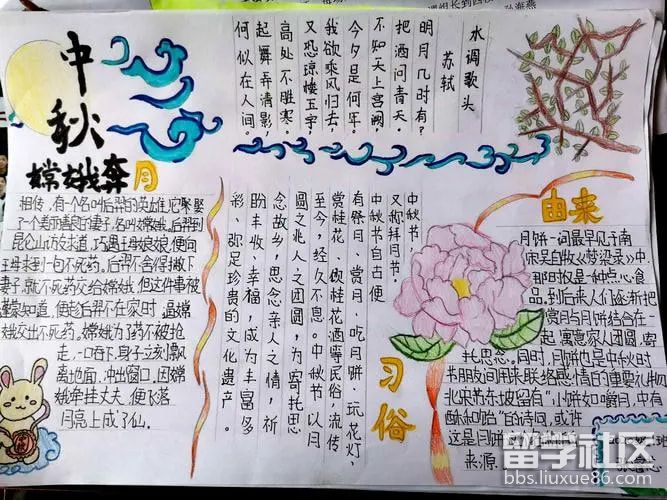 中秋
水调歌头
苏轼
明月几时有？
把酒问青天。
不知天上宫阙
今夕是何年。
我欲乘风归去，
又恐琼楼玉宇
高处不胜寒。
起舞弄清影，
何似在人间。
嫦娥奔月
相传，有个名叫后羿的英雄
了个美丽善良的妻子，名叫嫦娥。后羿到
昆仑山访友求道，巧遇王母娘娘，便向
王母求到一包不死药。后羿不舍得撇下
妻子，就不死药交给嫦娥，但这件事被
蓬蒙知道，便趁后羿不在家时，逼嫦
娥交出不死药。嫦娥为了药不被抢
走，一口吞下，身子立刻飘
离地面，冲出窗口。因嫦
娥牵挂丈夫，便飞落
月亮上成了仙。
中秋节，
又称拜月节。
中秋节自古便
有祭月、赏月、吃月饼、玩花灯、
赏桂花、饮桂花酒等民俗，流传
至今，经久不息。中秋节以月
圆之兆人之团圆，为寄托思
念故乡，思念亲人之情，祈
盼丰收、幸福，成为丰富多
彩、弥足珍贵的文化遗产。
习俗
由来
月饼一词最早见于南
宋吴自牧《梦梁录》中
那时,仅是一种点心食
品。到后来人们逐渐把
赏月与月饼结合在一
起，寓意家人团圆，寄
托思念。同时，月饼也是中秋时
节朋友间用来联络感情的重要礼物
北宋苏东坡留有"小饼如嚼月，中有
酥和饴"的诗词，或许
这是月饼
来源.
班
留学社区
bbs.liuxue86.com